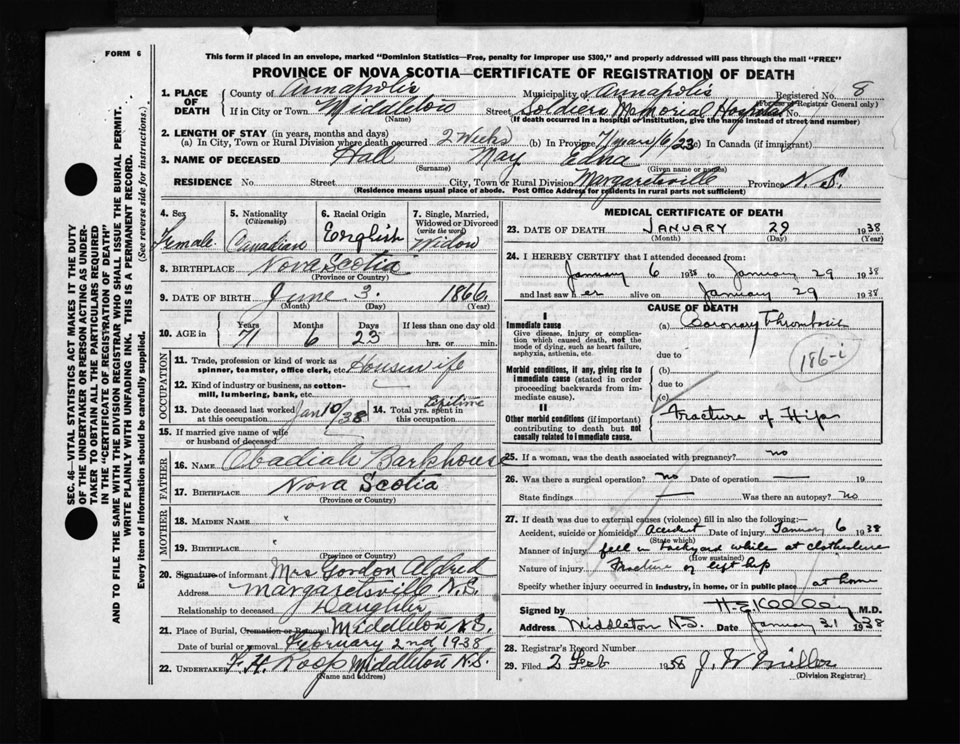 FORM 6
This form if placed in an envelope, marked "Dominion Statistics—Free, penalty for improper use $300," and properly addressed will pass through the mail "FREE"
PROVINCE OF NOVA SCOTIA—CERTIFICATE OF REGISTRATION OF DEATH
1. PLACE OF DEATH County of Annapolis Municipality of Annapolis Registered No. 8
(For use of Registrar General only)
If in City or Town Middleton Street Soldiers Memorial Hospital No.
(Name) (If death occurred in a hospital or institution, give the name instead of street and number)
2. LENGTH OF STAY (in years, months and days)
(a) In City, Town or Rural Division where death occurred 2 Weeks (b) In Province 71 years/6/23 (c) In Canada (if immigrant)
3. NAME OF DECEASED Hall May Edna
(Surname) (Given name or names)
RESIDENCE No. Street City, Town or Rural Division Margaretsville Province N.S.
(Residence means usual place of abode. Post Office Address for residents in rural parts not sufficient)
4. Sex Female
5. Nationality (Citizenship) Canadian
6. Racial Origin English
7. Single, Married, Widowed or Divorced (write the word) Widow
8. BIRTHPLACE Nova Scotia
(Province or Country)
9. DATE OF BIRTH June 3 1866
(Month) (Day) (Year)
10. AGE in Years Months Days If less than one day old
71 6 23 hrs. or min.
OCCUPATION
11. Trade, profession or kind of work as spinner, teamster, office clerk, etc. Housewife
12. Kind of industry or business, as cotton-mill, lumbering, bank, etc.
13. Date deceased last worked at this occupation Jan 10/38
14. Total yrs. spent in this occupation Lifetime
15. If married give name of wife or husband of deceased
FATHER
16. NAME Obadiah Barkhouse
17. BIRTHPLACE Nova Scotia
(Province or Country)
MOTHER
18. MAIDEN NAME
19. BIRTHPLACE
(Province or Country)
20. Signature of informant Mrs Gordon Aldred
Address Margaretsville N.S.
Relationship to deceased Daughter
21. Place of Burial, Cremation or Removal Middleton N.S.
Date of burial or removal February 2nd 1938
22. UNDERTAKER F. H. Roop Middleton N.S.
(Name and address)
MEDICAL CERTIFICATE OF DEATH
23. DATE OF DEATH JANUARY 29 1938
(Month) (Day) (Year)
24. I HEREBY CERTIFY that I attended deceased from:
January 6 1938 to January 29 1938
and last saw her alive on January 29 1938
CAUSE OF DEATH
I
Immediate cause
Give disease, injury or complication which caused death, not the mode of dying, such as heart failure, asphyxia, asthenia, etc.
(a) Coronary Thrombosis
due to
186-i
Morbid conditions, if any, giving rise to immediate cause (stated in order proceeding backwards from immediate cause).
(b)
due to
(c)
II
Other morbid conditions (if important) contributing to death but not causally related to immediate cause.
Fracture of Hip
25. If a woman, was the death associated with pregnancy? no
26. Was there a surgical operation? no Date of operation — 19
State findings — Was there an autopsy? no
27. If death was due to external causes (violence) fill in also the following:—
Accident, suicide or homicide? Accident Date of injury January 6 1938
(State which)
Manner of injury fell in backyard while at clothesline
(How sustained)
Nature of injury Fracture of left hip
Specify whether injury occurred in industry, in home, or in public place at home
Signed by M.D.
Address Middleton N.S. Date January 31 1938
28. Registrar's Record Number
29. Filed 2 Feb 1938 J. W. Miller
(Division Registrar)
SEC. 46—VITAL STATISTICS ACT MAKES IT THE DUTY
OF THE UNDERTAKER OR PERSON ACTING AS UNDER-
TAKER TO OBTAIN ALL THE PARTICULARS REQUIRED
IN THE "CERTIFICATE OF REGISTRATION OF DEATH"
AND TO FILE THE SAME WITH THE DIVISION REGISTRAR WHO SHALL ISSUE THE BURIAL PERMIT.
WRITE PLAINLY WITH UNFADING INK. THIS IS A PERMANENT RECORD.
Every item of information should be carefully supplied. (See reverse side for instructions.)